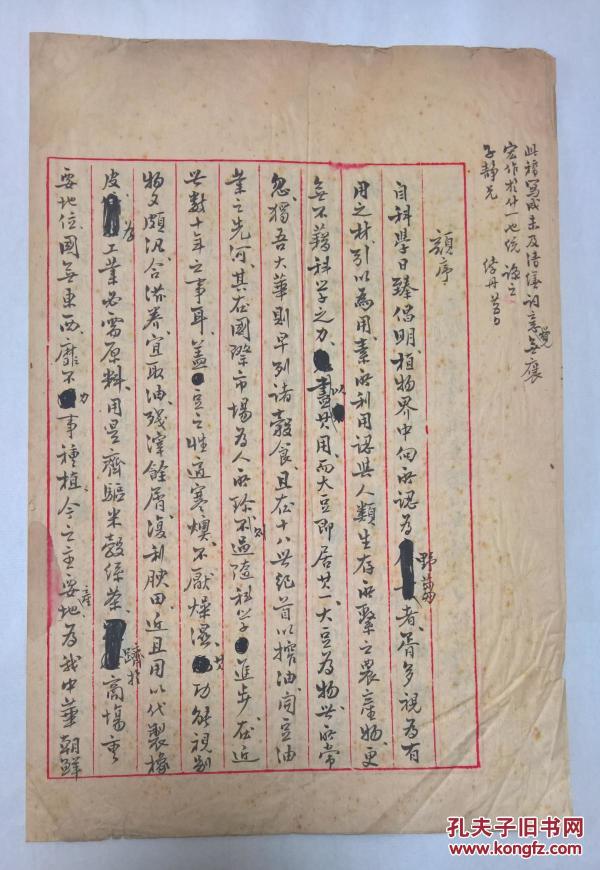 此稿寫成未及清繕詞意無襄
宏作於廿一世紀 誌之
子靜兄
顧序
自科學日臻倡明植物界中向所認為野蒭者胥多視為有
用之材引以為用素所利用認與人類生存所繫之農產物更
無不藉科學之力以盡其用而大豆即居其一大豆為物世所常
忽獨吾大華則早列諸穀食且在十八世紀首以搾油開豆油
業之先河其在國際市場為人所珍則不過隨科學進步在近
世數十年之事耳蓋豆之性適寒燠不厭燥濕其功能視別
物又頗汎合滋養宜取油殘滓餘屑復利腴田近且用以代製橡
皮為工業必需原料用是齊駈米穀絲茶躋於商場重
要地位國無東西靡不力事種植今之主要產地為我中華朝鮮
孔夫子旧书网
www.kongfz.com